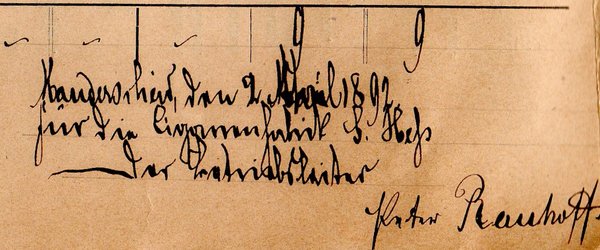 9 9
den 2. April 1892
für die Cigarrenfabrik Heß
Der Betriebsleiter
Peter Rauhoff.